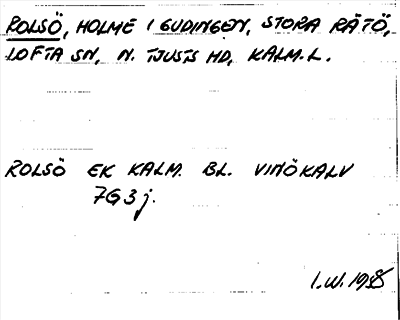 ROLSÖ, HOLME I GUDINGEN, STORA RÄTÖ,
LOFTA SN, N. TJUSTS HD, KALM. L.
ROLSÖ EK KALM. BL. VINÖKALV
7G3j.
I.W. 1985